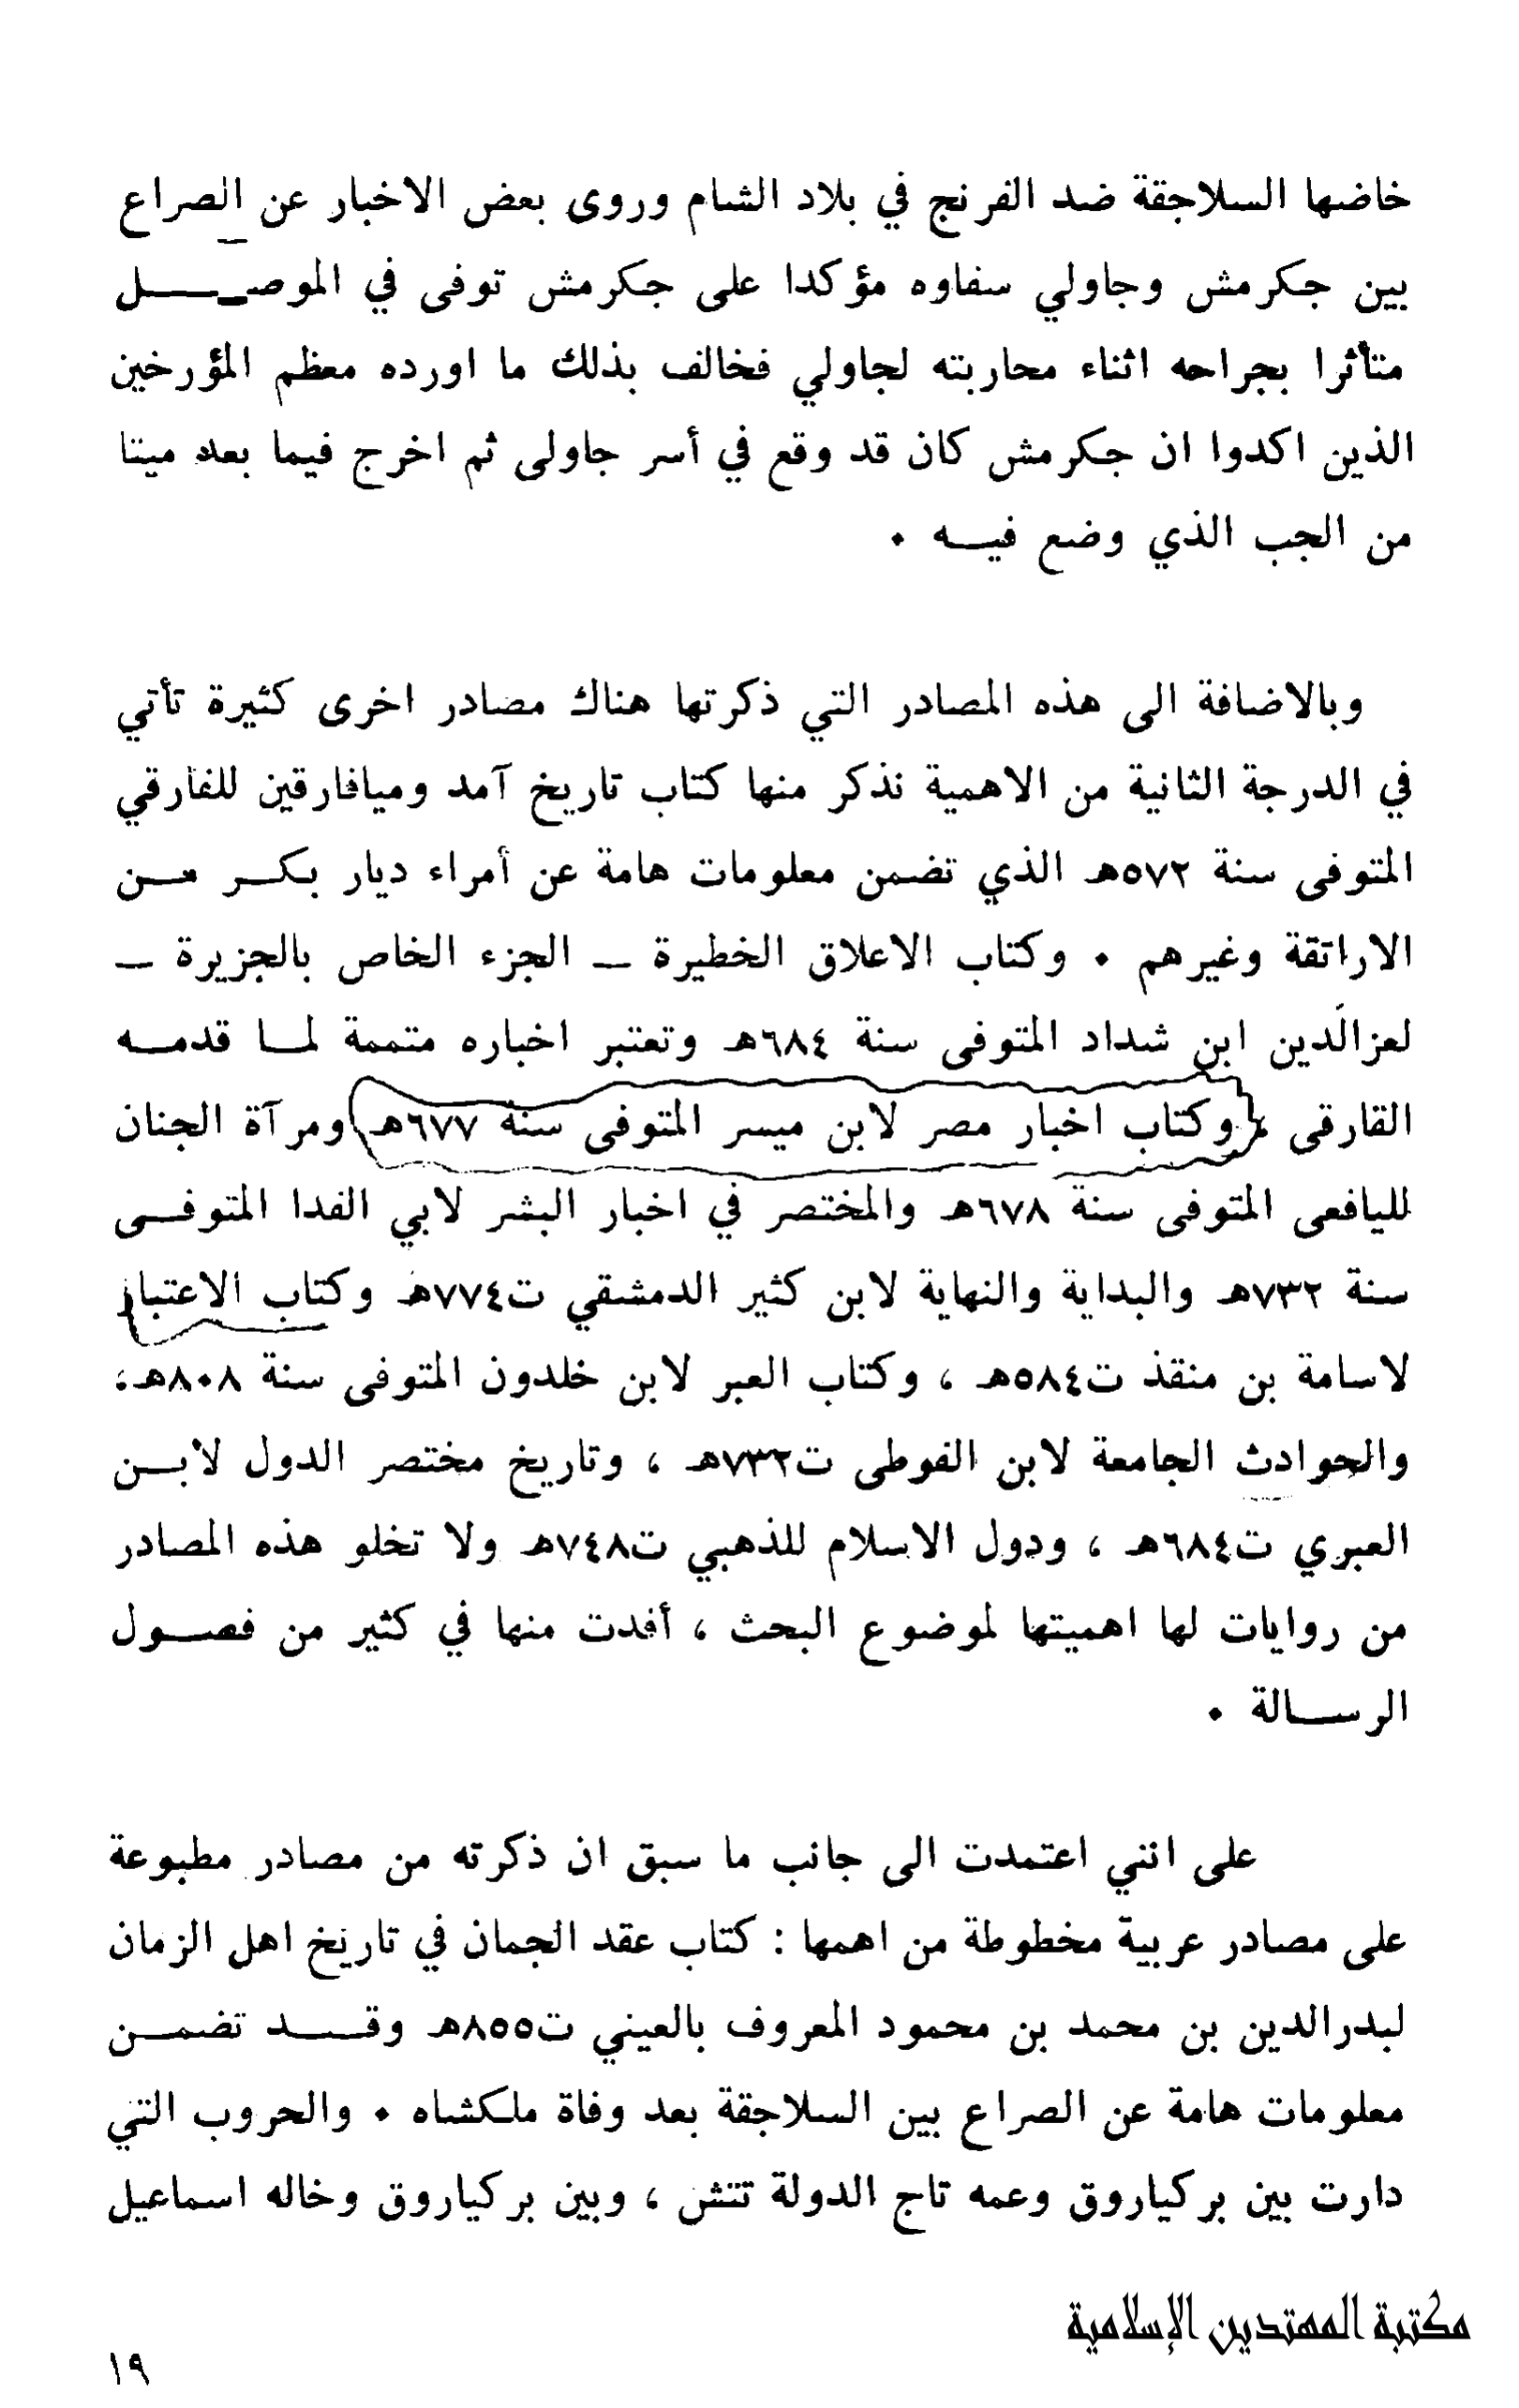 خاضها السلاجقة ضد الفرنج في بلاد الشام وروى بعض الاخبار عن الصراع
بين جكرمش وجاولي سفاوه مؤكدا على جكرمش توفى في الموصـــل
متأثرا بجراحه اثناء محاربته لجاولي فخالف بذلك ما اورده معظم المؤرخين
الذين اكدوا ان جكرمش كان قد وقع في أسر جاولى ثم اخرج فيما بعد ميتا
من الجب الذي وضع فيــه ٠
وبالاضافة الى هذه المصادر التي ذكرتها هناك مصادر اخرى كثيرة تأتي
في الدرجة الثانية من الاهمية نذكر منها كتاب تاريخ آمد وميافارقين للفارقي
المتوفى سنة ٥٧٢هـ الذي تضمن معلومات هامة عن أمراء ديار بكــر مــن
الاراتقة وغيرهم ٠ وكتاب الاعلاق الخطيرة ــ الجزء الخاص بالجزيرة ــ
لعزالدين ابن شداد المتوفى سنة ٦٨٤هـ وتعتبر اخباره متممة لمــا قدمــه
القارقى ، وكتاب اخبار مصر لابن ميسر المتوفى سنة ٦٧٧هـ ومرآة الجنان
لليافعى المتوفى سنة ٦٧٨هـ والمختصر في اخبار البشر لابي الفدا المتوفــى
سنة ٧٣٢هـ والبداية والنهاية لابن كثير الدمشقي ت٧٧٤هـ وكتاب الاعتبار
لاسامة بن منقذ ت٥٨٤هـ ، وكتاب العبر لابن خلدون المتوفى سنة ٨٠٨هـ،
والحوادث الجامعة لابن الفوطى ت٧٣٢هـ ، وتاريخ مختصر الدول لابــن
العبري ت٦٨٤هـ ، ودول الاسلام للذهبي ت٧٤٨هـ ولا تخلو هذه المصادر
من روايات لها اهميتها لموضوع البحث ، أفدت منها في كثير من فصــول
الرســالة ٠
على انني اعتمدت الى جانب ما سبق ان ذكرته من مصادر مطبوعة
على مصادر عربية مخطوطة من اهمها : كتاب عقد الجمان في تاريخ اهل الزمان
لبدرالدين بن محمد بن محمود المعروف بالعيني ت٨٥٥هـ وقــــد تضمــن
معلومات هامة عن الصراع بين السلاجقة بعد وفاة ملكشاه ٠ والحروب التي
دارت بين بركياروق وعمه تاج الدولة تتش ، وبين بركياروق وخاله اسماعيل
مكتبة المهتدين الإسلامية
١٩